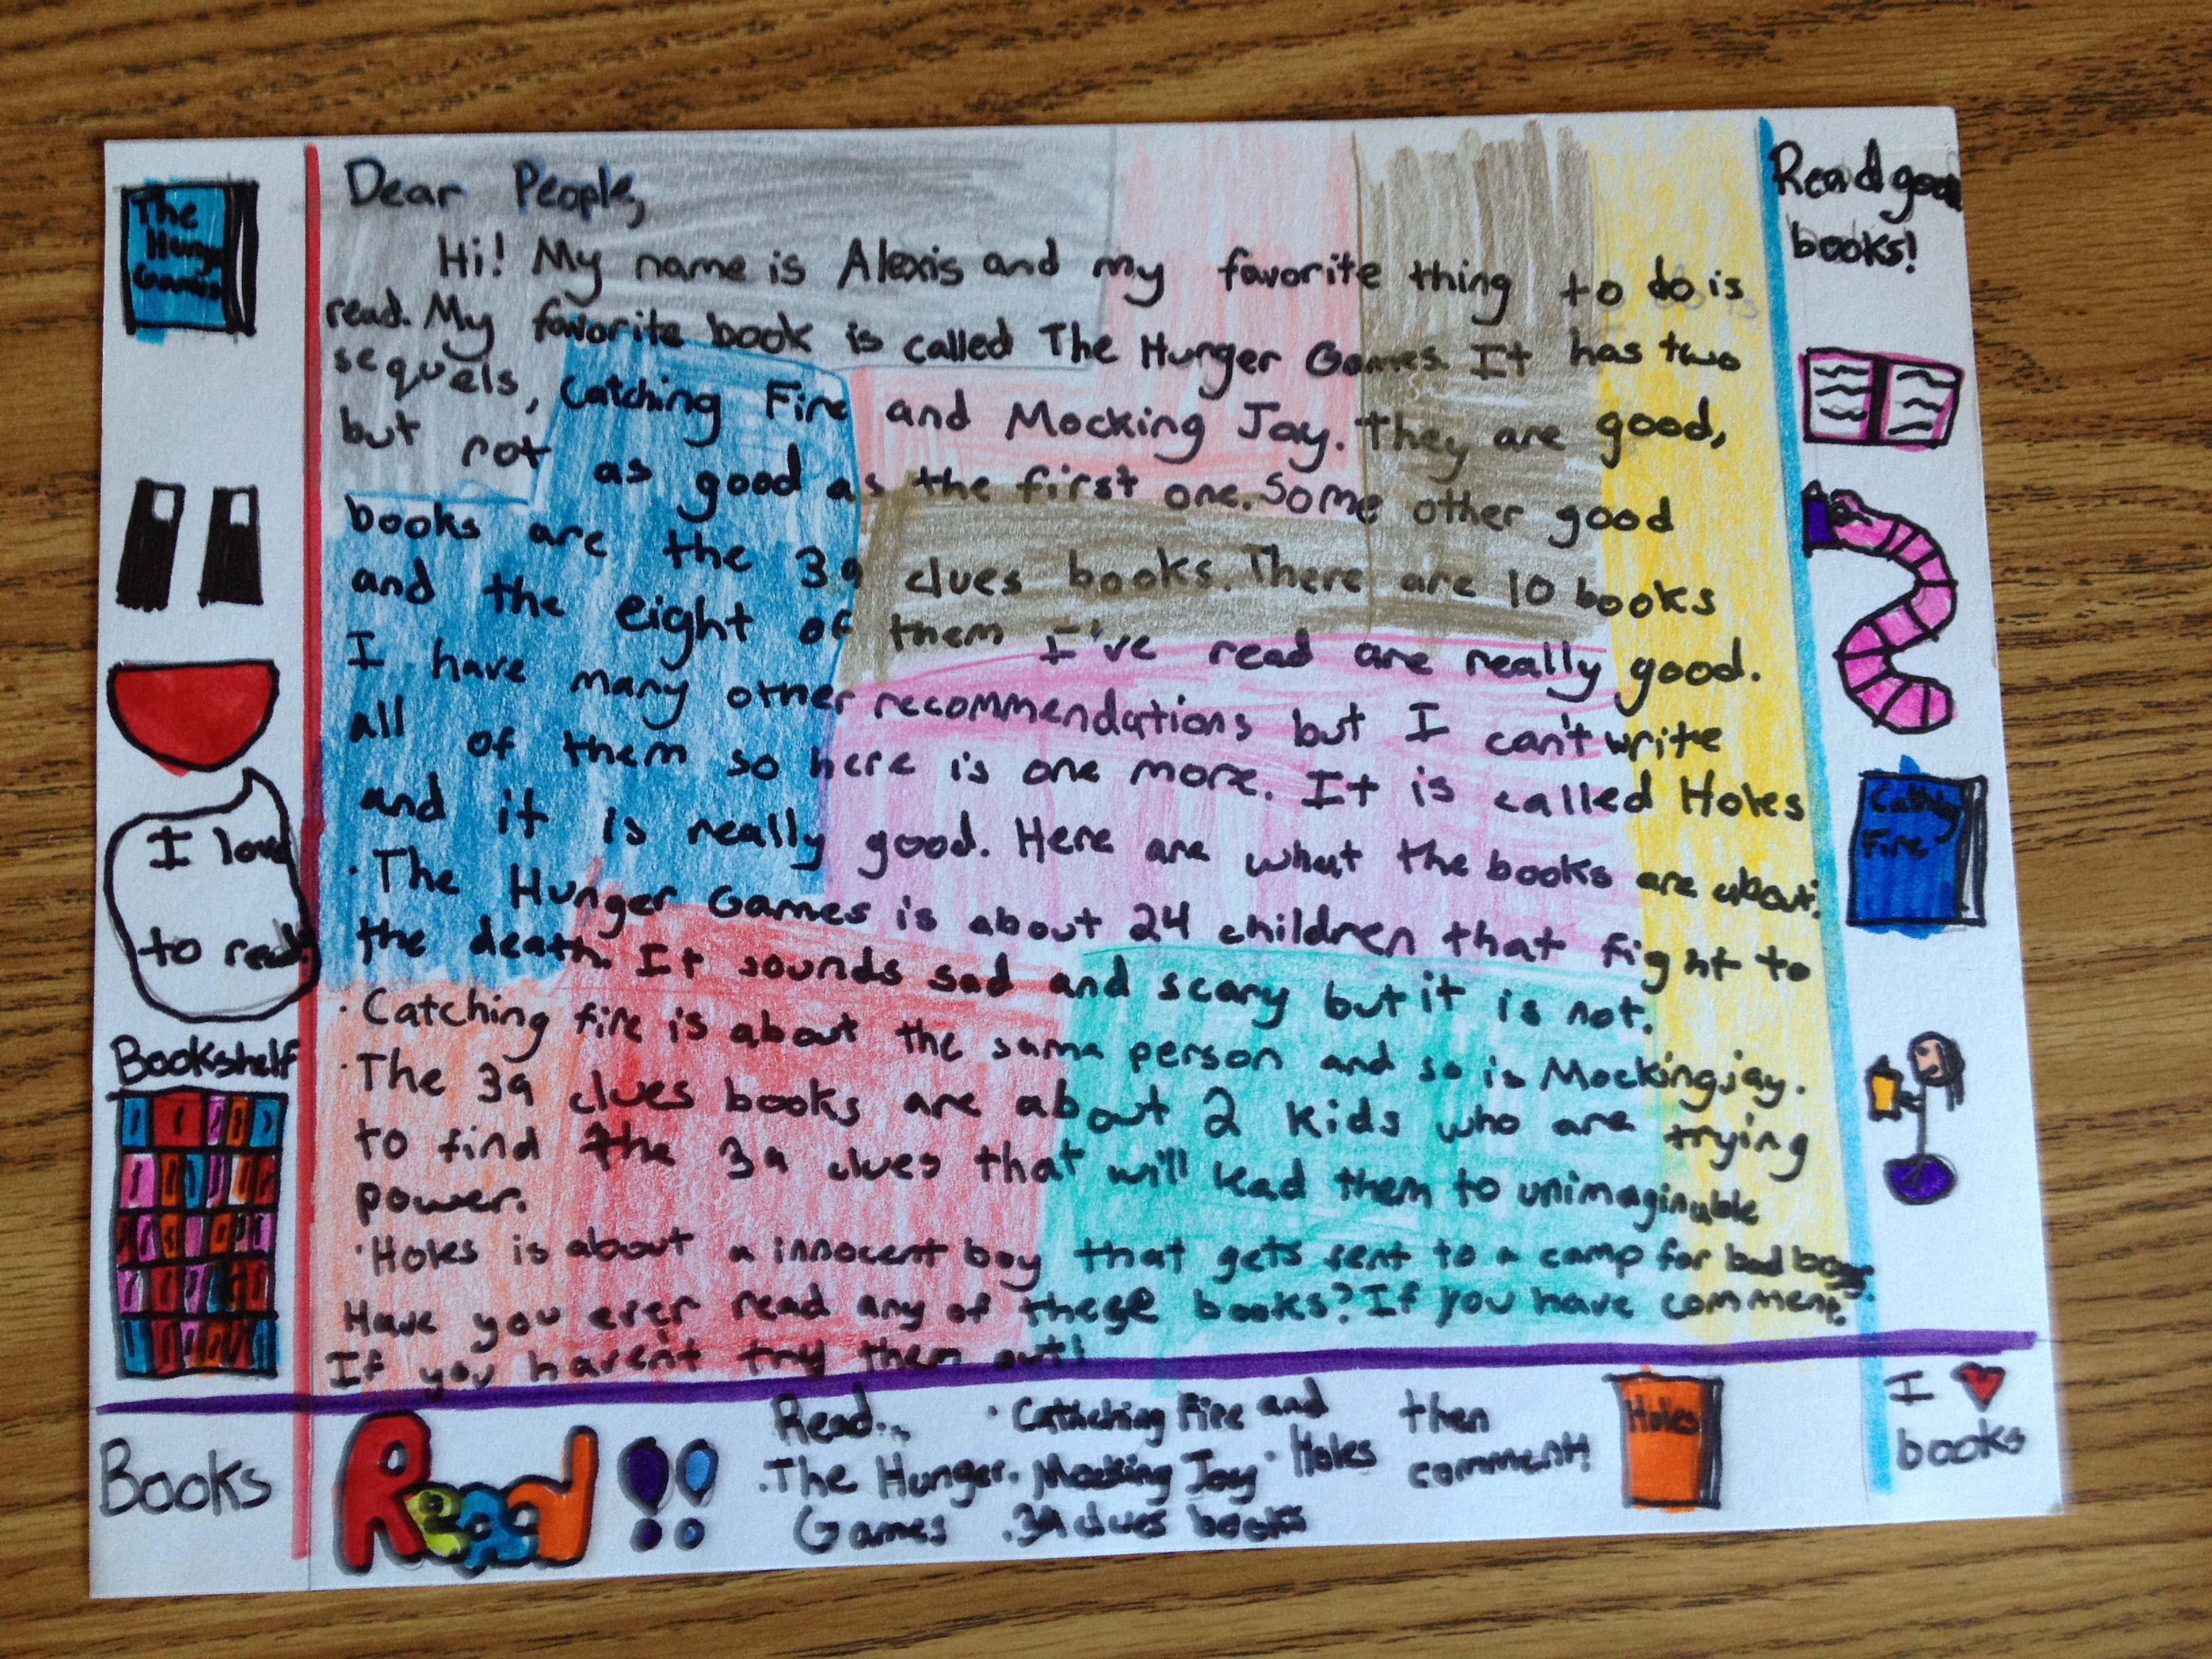 The
Hunger
Games
I love
to read!
Bookshelf
Books
Dear People,
Hi! My name is Alexis and my favorite thing to do is
read. My favorite book is called The Hunger Games. It has two
sequels, Catching Fire and Mocking Jay. They are good,
but not as good as the first one. Some other good
books are the 39 clues books. There are 10 books
and the eight of them I've read are really good.
I have many other recommendations but I can't write
all of them so here is one more. It is called Holes
and it is really good. Here are what the books are about:
·The Hunger Games is about 24 children that fight to
the death. It sounds sad and scary but it is not.
·Catching fire is about the same person and so is Mockingjay.
·The 39 clues books are about 2 kids who are trying
to find the 39 clues that will lead them to unimaginable
power.
·Holes is about a innocent boy that gets sent to a camp for bad boys.
Have you ever read any of these books? If you have comment.
If you haven't try them out!
Read good
books!
Catching
Fire
Read!!
Read...
·The Hunger
Games
·Cathching Fire and
·Mocking Jay
·39 clues books
·Holes
then
comment!
Holes
I ♥
books